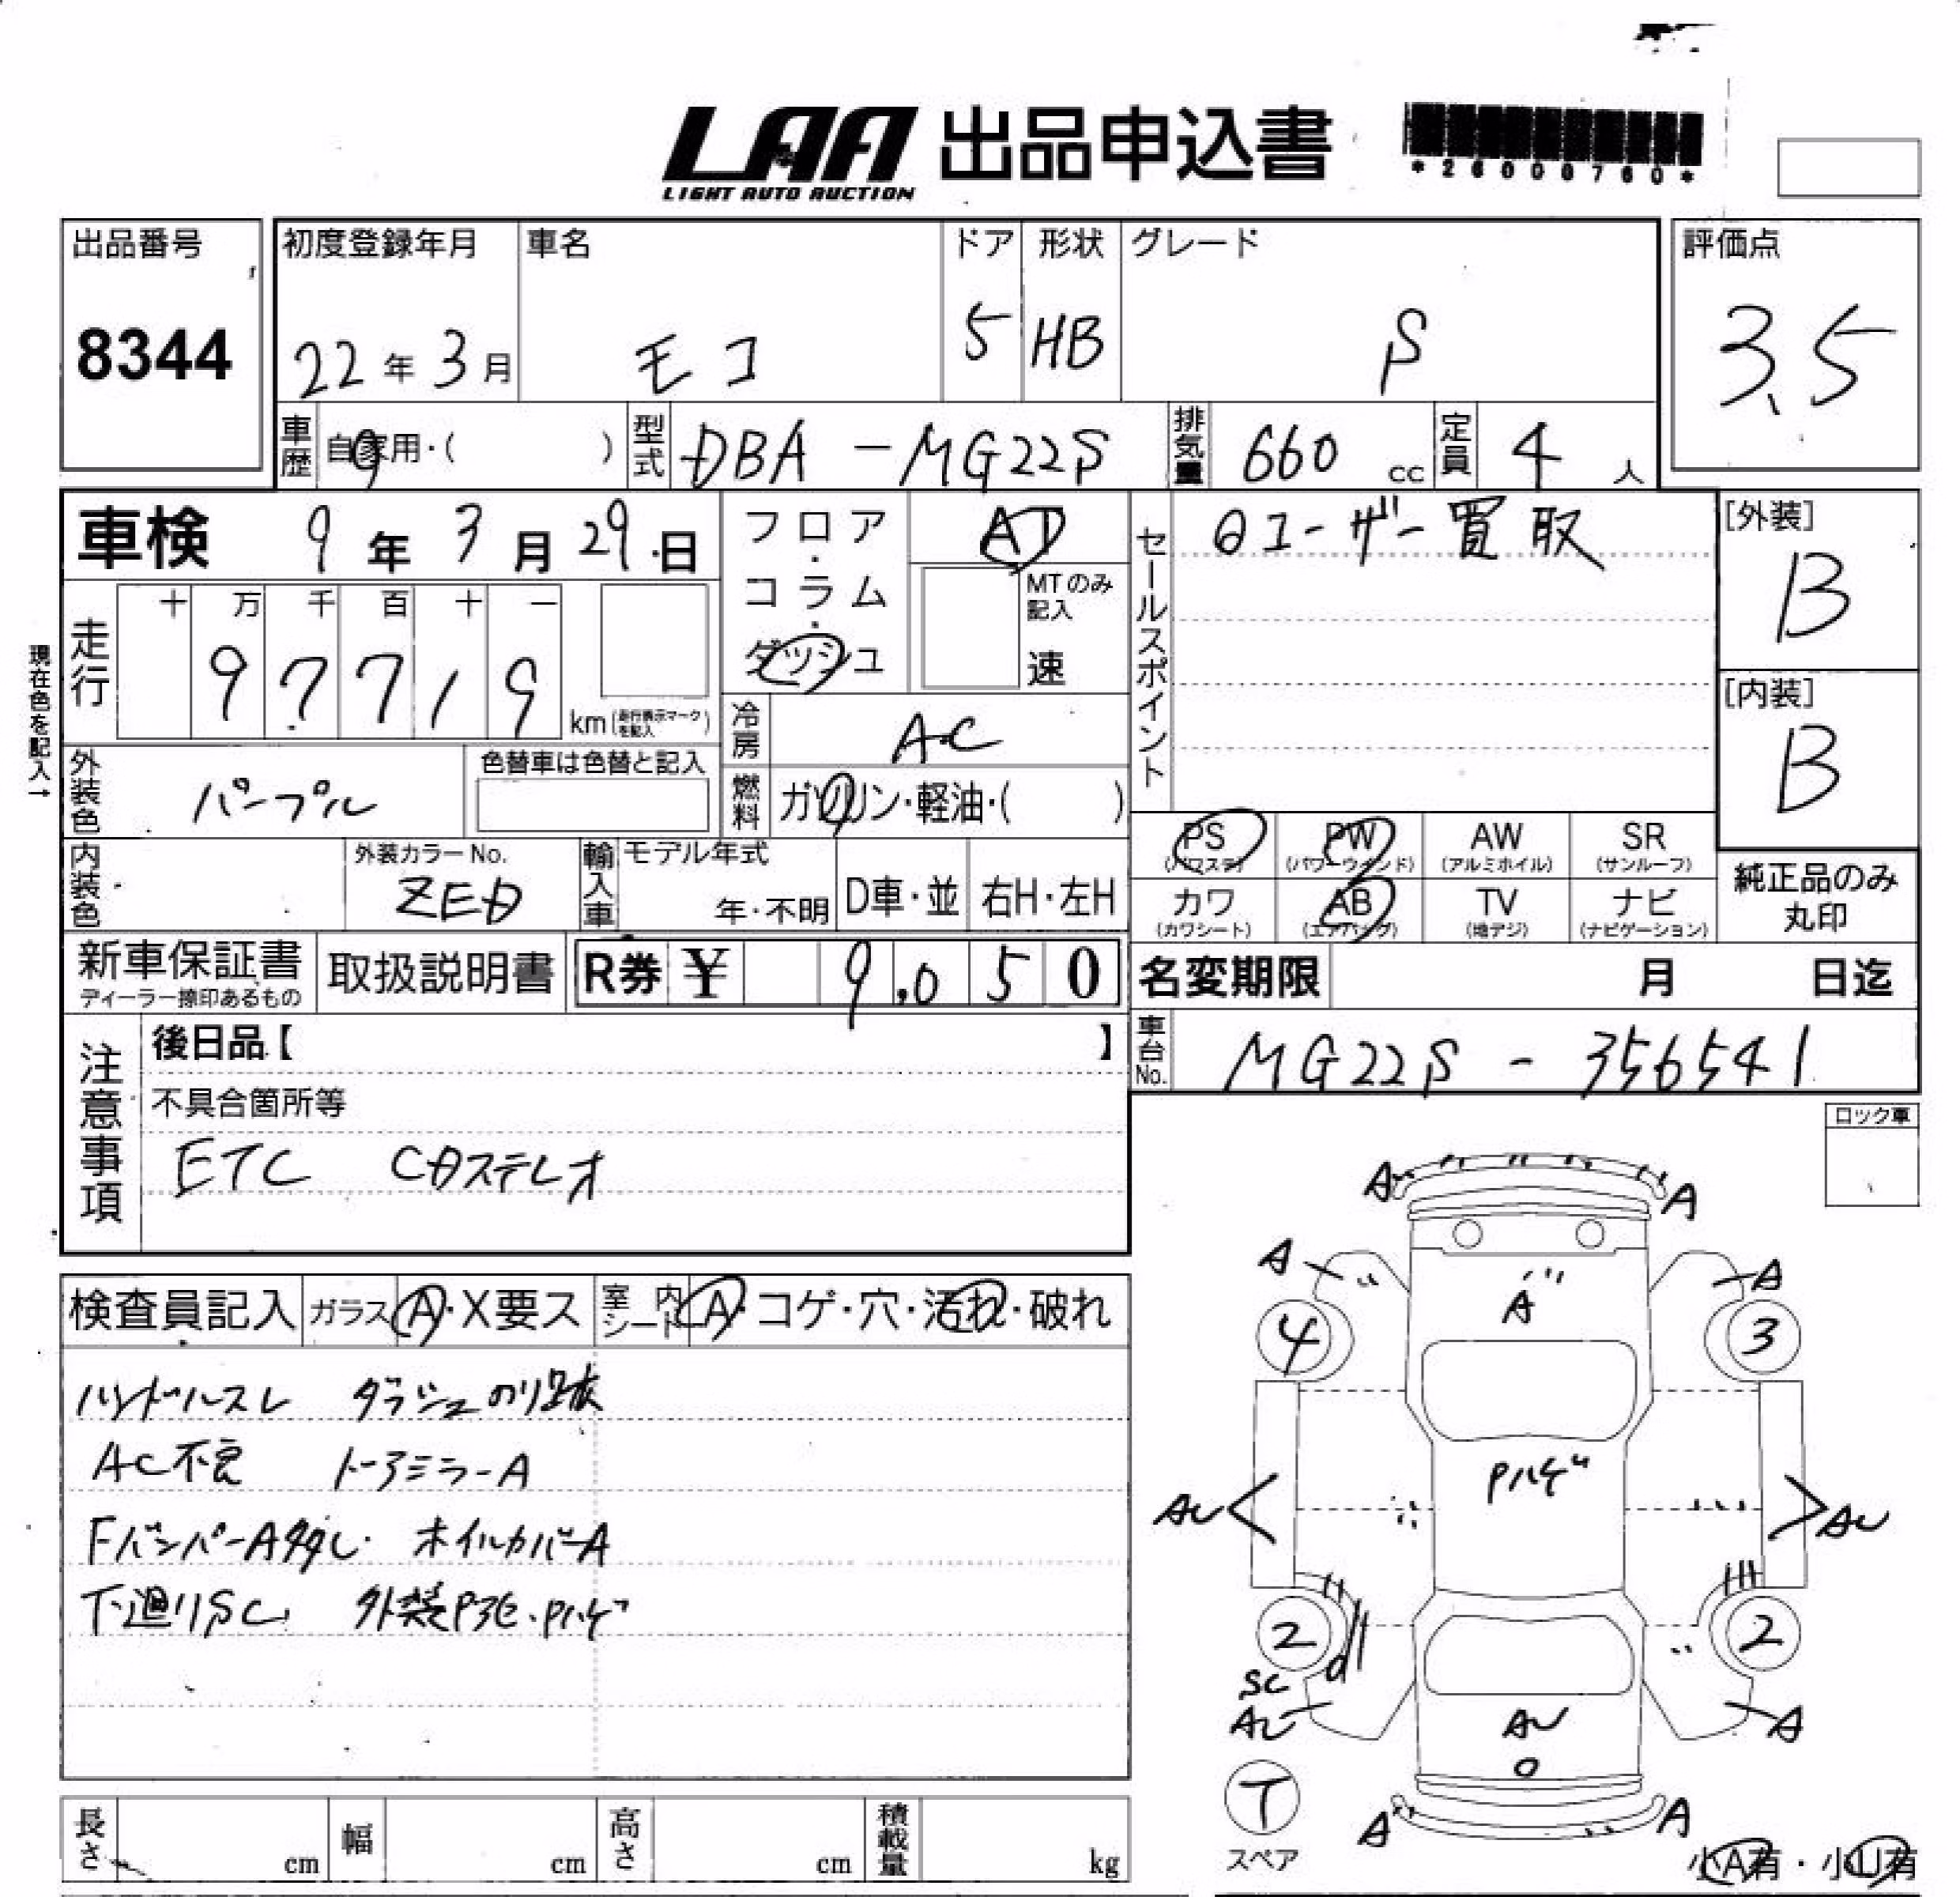 LAA 出品申込書
LIGHT AUTO AUCTION
*26000760*
出品番号 初度登録年月 車名 ドア 形状 グレード 評価点
8344 22年3月 モコ 5 HB S 3.5
車歴 自家用・( ) 型式 DBA-MG22S 排気量 660cc 定員 4人
車検 9年3月29日 フロア・コラム・ダッシュ AT
MTのみ記入 速
セールスポイント
Dユーザー買取
[外装] B
現在色を記入→
走行 十 万 千 百 十 一
97719 km (走行表示マークを記入)
[内装] B
冷房 AC
外装色 パープル 色替車は色替と記入 燃料 ガソリン・軽油・( )
PS (パワステ) PW (パワーウインド) AW (アルミホイル) SR (サンルーフ)
内装色 外装カラーNo. ZED 輸入車 モデル年式 年・不明 D車・並 右H・左H
カワ (カワシート) AB (エアバッグ) TV (地デジ) ナビ (ナビゲーション)
純正品のみ丸印
新車保証書 ディーラー捺印あるもの 取扱説明書 R券 ¥ 9,050 名変期限 月 日迄
注意事項 後日品【 】
車台No. MG22S-356541
不具合箇所等
ETC CDステレオ
ロック車
検査員記入 ガラス A・X要ス 室内シート A・コゲ・穴・汚れ・破れ
ハンドルスレ ダッシュのり跡
AC不良 ドアミラーA
FバンパーA多し ホイルカバーA
下廻りSC 外装P3C・Pハゲ
A A
A A
A
4 3
Pハゲ
AU AU
2 2
SC d
AU AU A
O
T
スペア
A A
小A有・小U有
長さ cm 幅 cm 高さ cm 積載量 kg